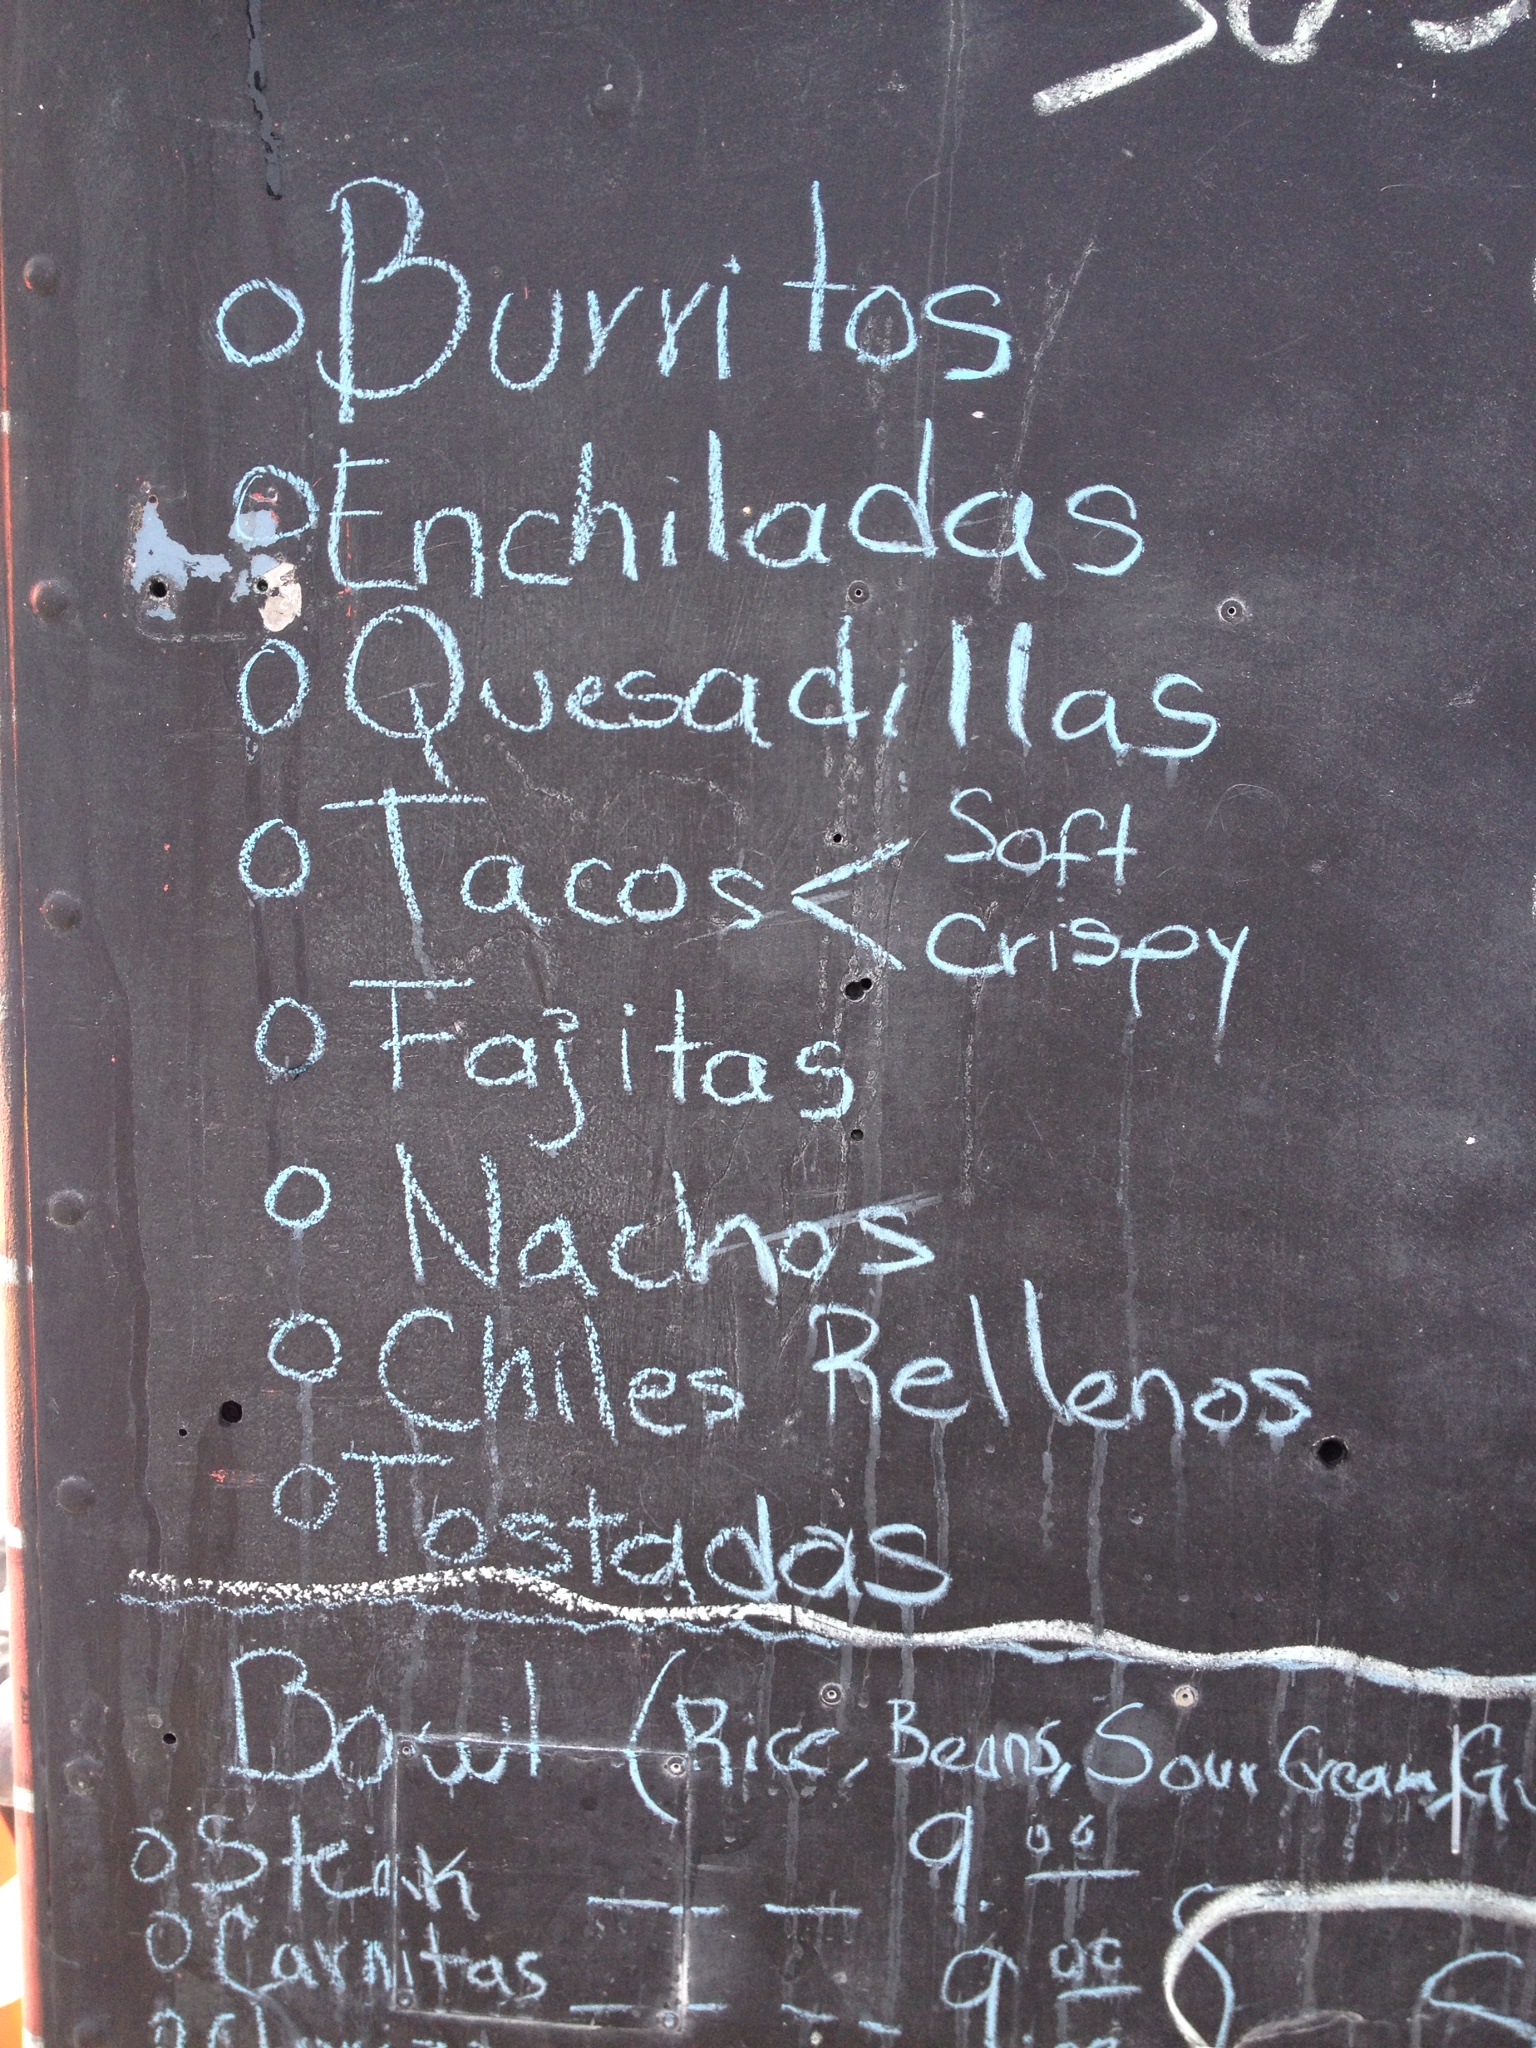 Burritos
Enchiladas
Quesadillas
Tacos < Soft
Crispy
Fajitas
Nachos
Chiles Rellenos
Tostadas
Bowl (Rice, Beans, Sour Cream/
Steak - - - 9.00
Carnitas - - - 9.00